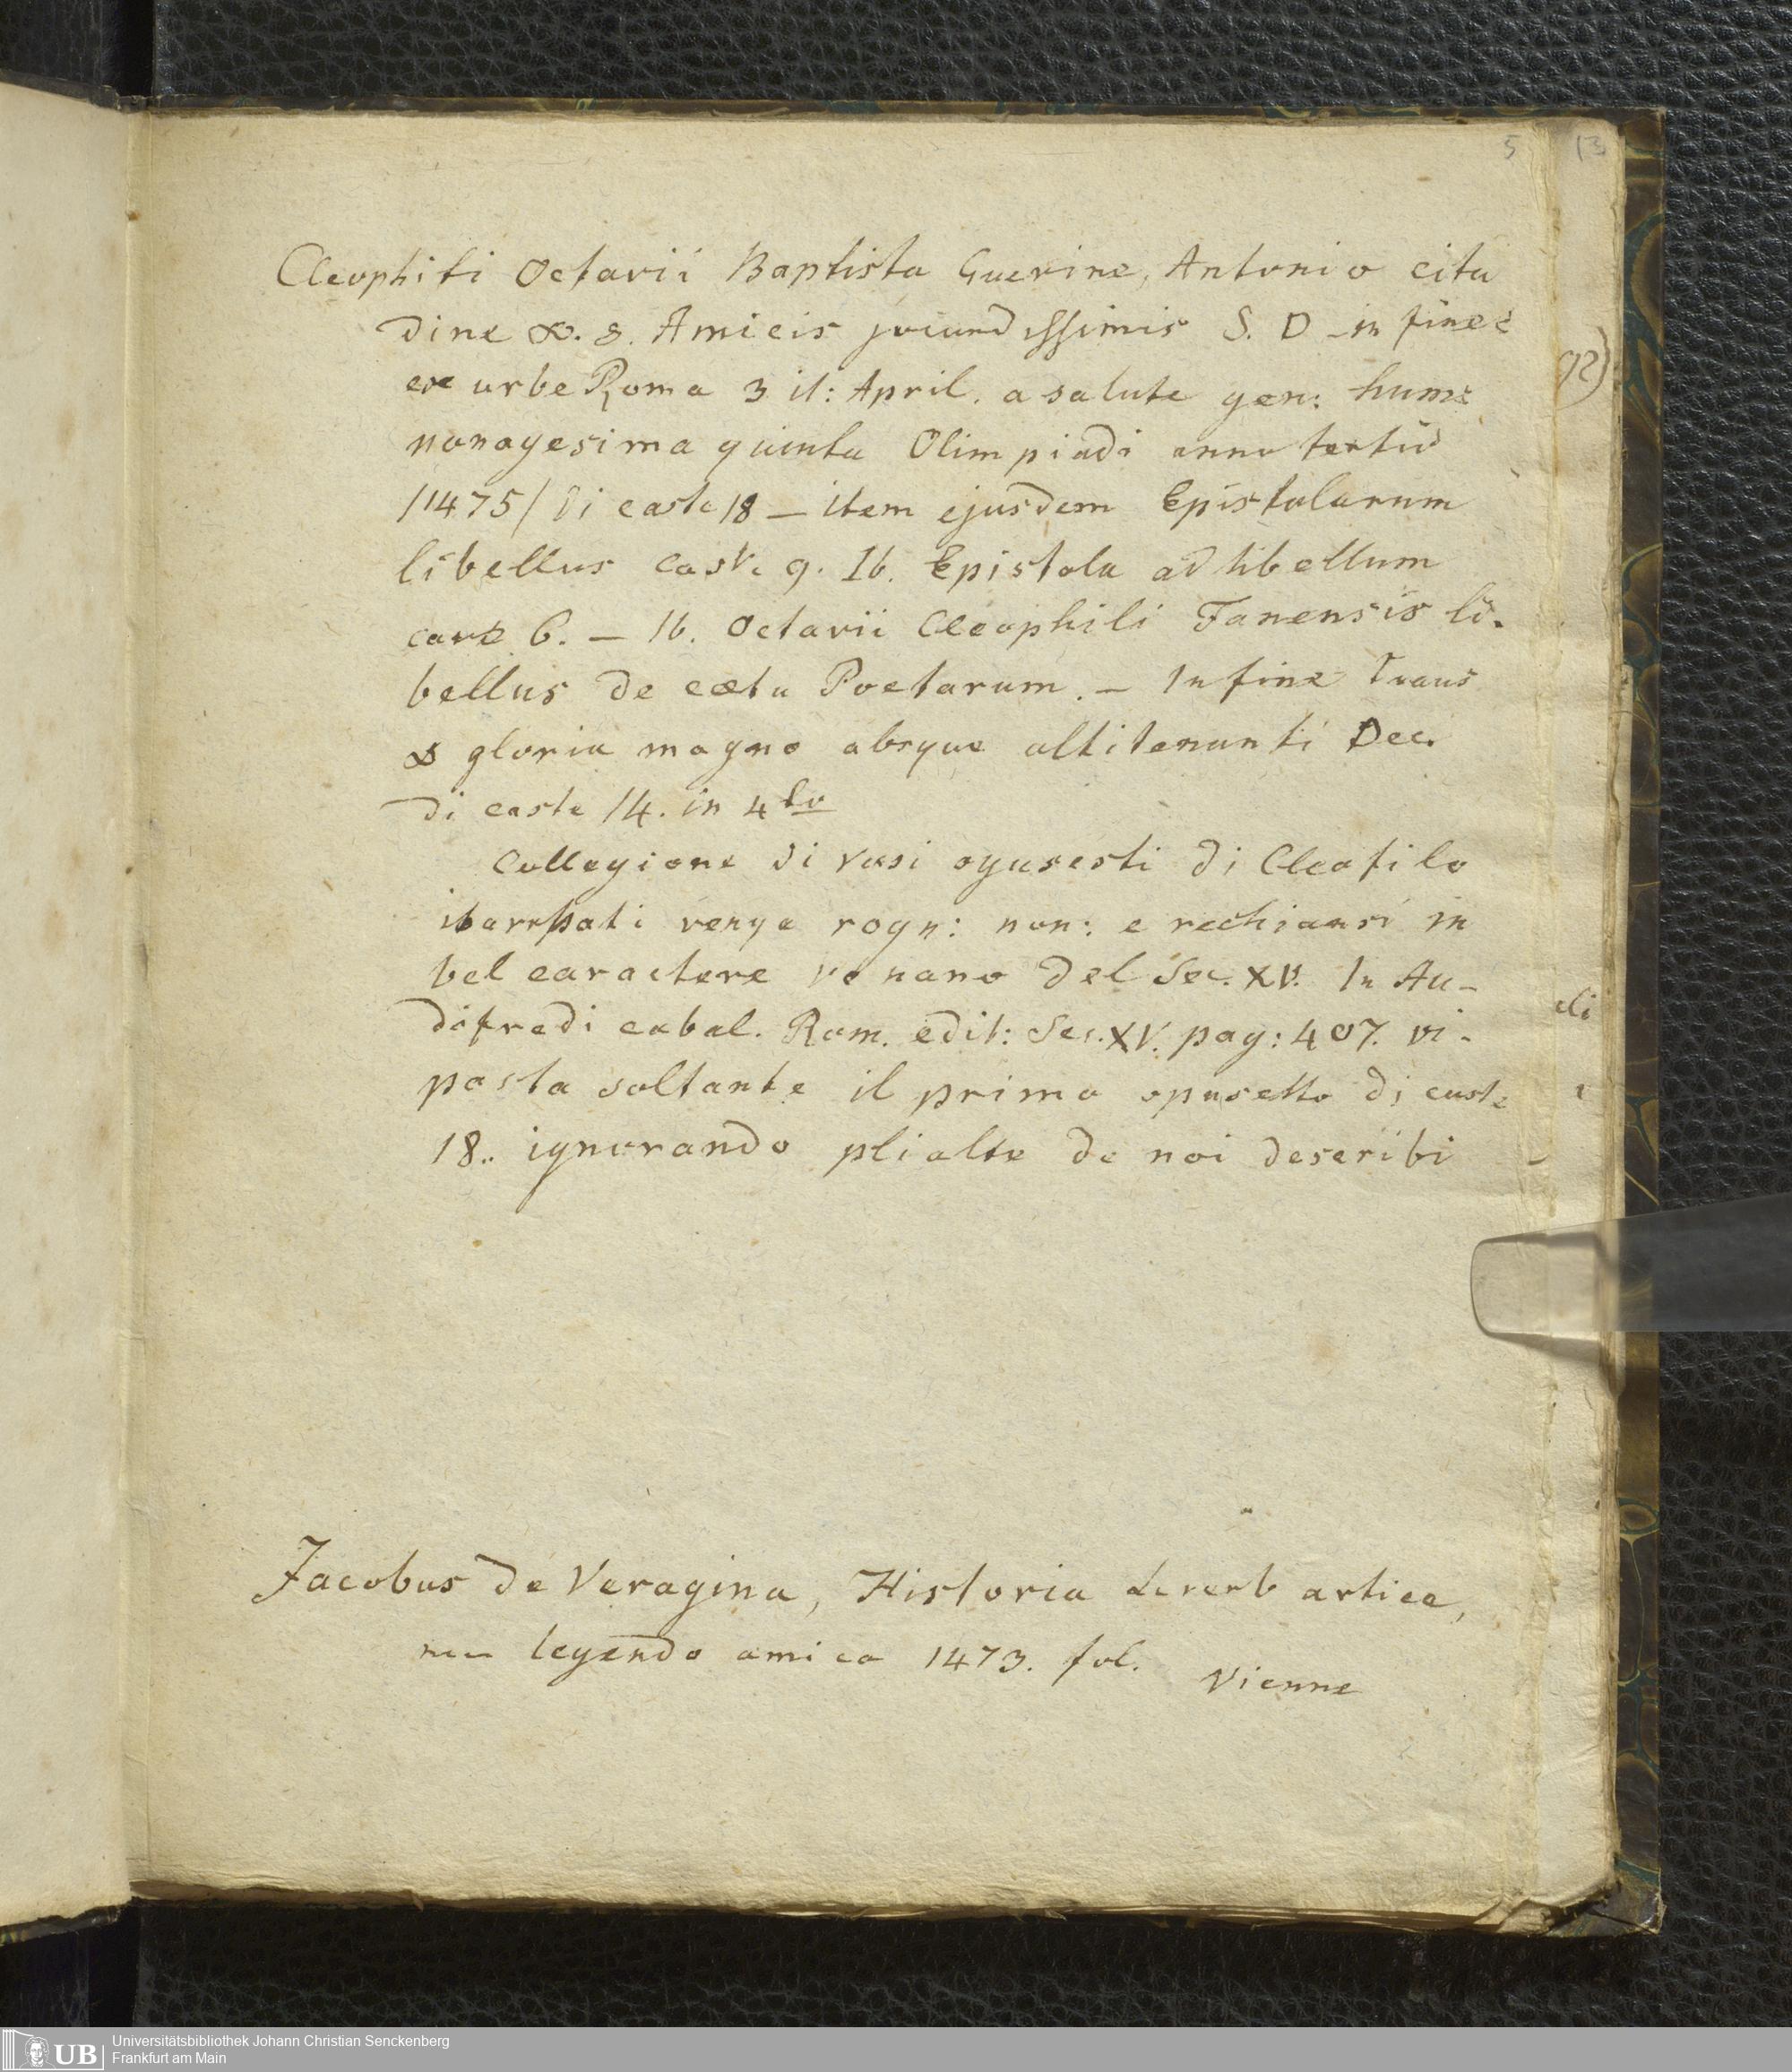 5 13
Cleophiti Octavii Baptista Guerine, Antonio citu
dine &. s. Amicis jucundissimis S. D - in fine
ex urbe Roma 3 il: April. a salute gen: hum:
nonagesima quinta Olimpiadi anno tertio
/1475/ Di carte 18 – item ejusdem Epistolarum
libellus cart. 9. Ib. Epistola ad libellum
carte 6. – Ib. Octavii Cleophili Fanensis li-
bellus de cœtu Poetarum. – In fine
& gloria magno absque altitenanti Deo.
di carte 14. in 4to
Collezione di rari opuscoli di Cleofilo
venga rogn: non: e rechiansi in
bel caractere romano del Sec. XV. In Au-
difredi cabal. Rom. edit: Sec. XV. pag: 407. ri-
posta soltante il primo opusetto di carte
18.. ignorando gli altre de noi descritti
Jacobus de Veragina, Historia
legendo amica 1473. fol.
Vienne
UB
Universitätsbibliothek Johann Christian Senckenberg
Frankfurt am Main